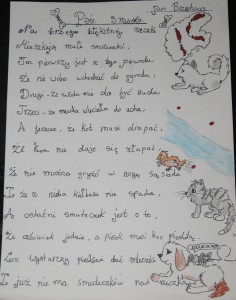 Jan Brzechwa
Psie Smutki
Na brzegu błękitnej rzeczki
Mieszkają małe smuteczki.
Ten pierwszy jest z tego powodu,
Że nie wolno wchodzić do ogrodu,
Drugi - że woda nie chce być sucha,
Trzeci - że mucha wleciała do ucha,
A jeszcze, że kot musi drapać,
Że kura nie daje się złapać,
Że nie można gryźć w nogę sąsiada
I że z nieba kiełbasa nie spada,
A ostatni smuteczek jest o to,
Że człowiek jedzie, a piesek musi biec piechotą.
Lecz wystarczy pieskowi dać mleczko
I już nie ma smuteczków nad rzeczką.